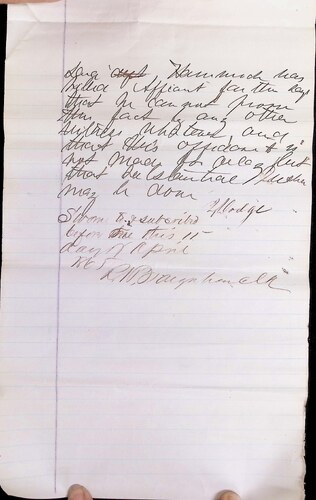 said Hammock was
killed Affiant further says
that he cannot prove
this fact by any other
witness whatever and
that this affidavit is
not made for delay but
that substantial Justice
may be done
Hodge
Sworn to & subscribed
before me this 15
day of April
R W Baughan Clk